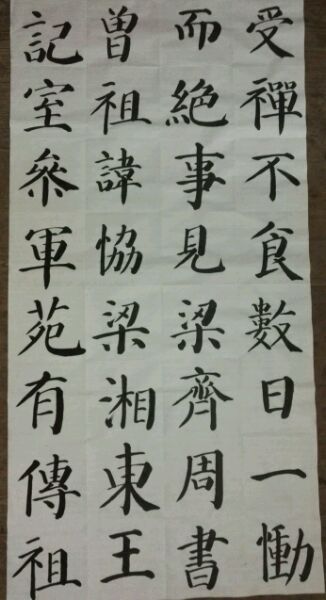 受禪不食數日一慟
而絶事見梁齊周書
曾祖諱協梁湘東王
記室叅軍苑有傳祖